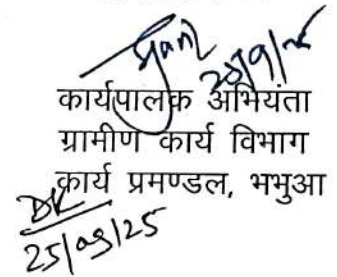 कार्यपालक अभियंता
ग्रामीण कार्य विभाग
कार्य प्रमण्डल, भभुआ
25/09/25